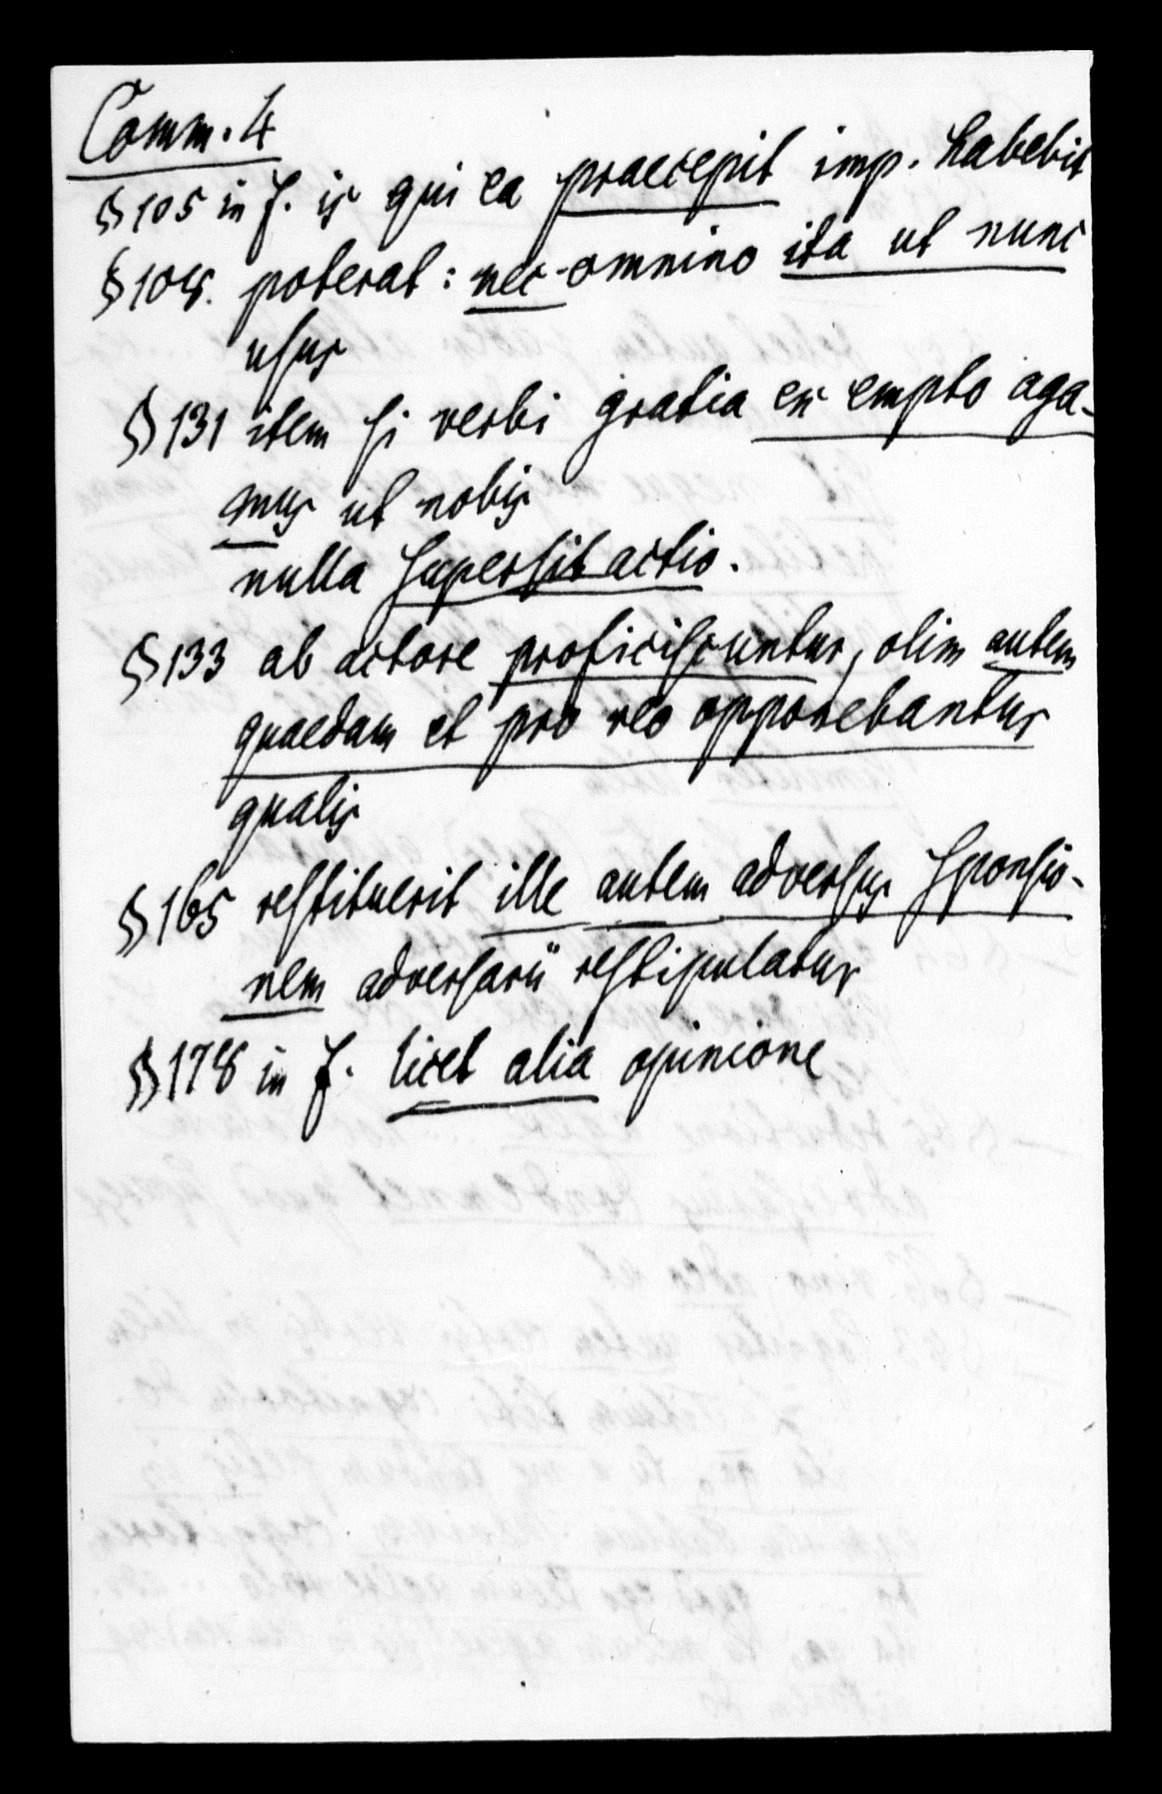 Comm. 4
§ 105 in f. is qui ea praecepit imp. habebit
§ 108. poterat: nec omnino ita ut nunc
usus
§ 131 item si verbi gratia ex empto aga-
mus ut nobis
nulla supersit actio.
§ 133 ab actore proficiscuntur, olim autem
quaedam et pro reo opponebantur
qualis
§ 165 restituerit ille autem adversus sponsio-
nem adversarii restipulatur
§ 178 in f. licet alia opinione